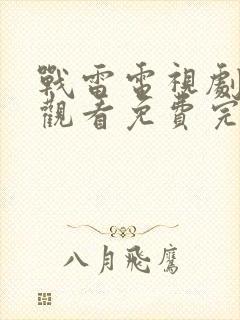 戰雷電視劇
觀看免費完
八月飛鷹